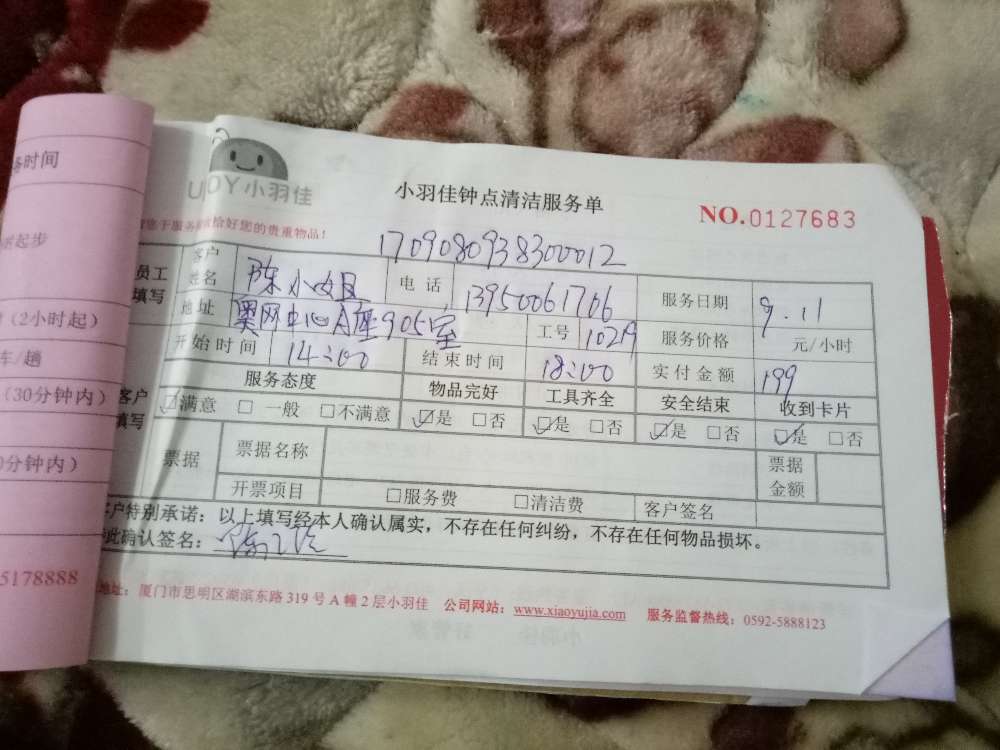 务时间
起步
（2小时起）
车/趟
（30分钟内）
0分钟内）
5178888
UJOY小羽佳
小羽佳钟点清洁服务单
NO.0127683
您于服务前收拾好您的贵重物品！
1709080938300012
员工填写
客户姓名 陈小姐 电话 13950061706 服务日期 9.11
地址 奥网中心A座905室 工号 10219 服务价格 元/小时
开始时间 14:00 结束时间 18:00 实付金额 199
客户填写
服务态度 物品完好 工具齐全 安全结束 收到卡片
☑满意 □一般 □不满意 ☑是 □否 ☑是 □否 ☑是 □否 ☑是 □否
票据 票据名称 票据金额
开票项目 □服务费 □清洁费 客户签名
客户特别承诺：以上填写经本人确认属实，不存在任何纠纷，不存在任何物品损坏。
此确认签名：
地址：厦门市思明区湖滨东路319号A幢2层小羽佳 公司网站：www.xiaoyujia.com 服务监督热线：0592-5888123